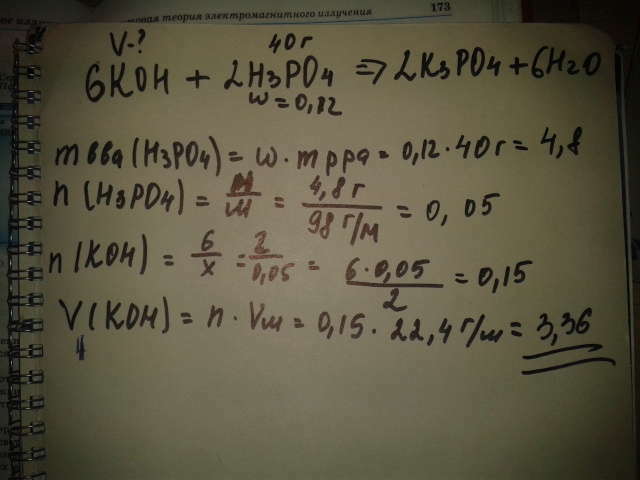 товая теория электромагнитного излучения 173
V-? 40г
6KOH + 2H3PO4 => 2K3PO4 + 6H2O
w = 0,12
m вва (H3PO4) = w · m рра = 0,12 · 40г = 4,8
n (H3PO4) = m/M = 4,8 г/98 г/м = 0,05
n (KOH) = 6/x = 2/0,05 = 6·0,05/2 = 0,15
V (KOH) = n · Vm = 0,15 · 22,4 г/м = 3,36